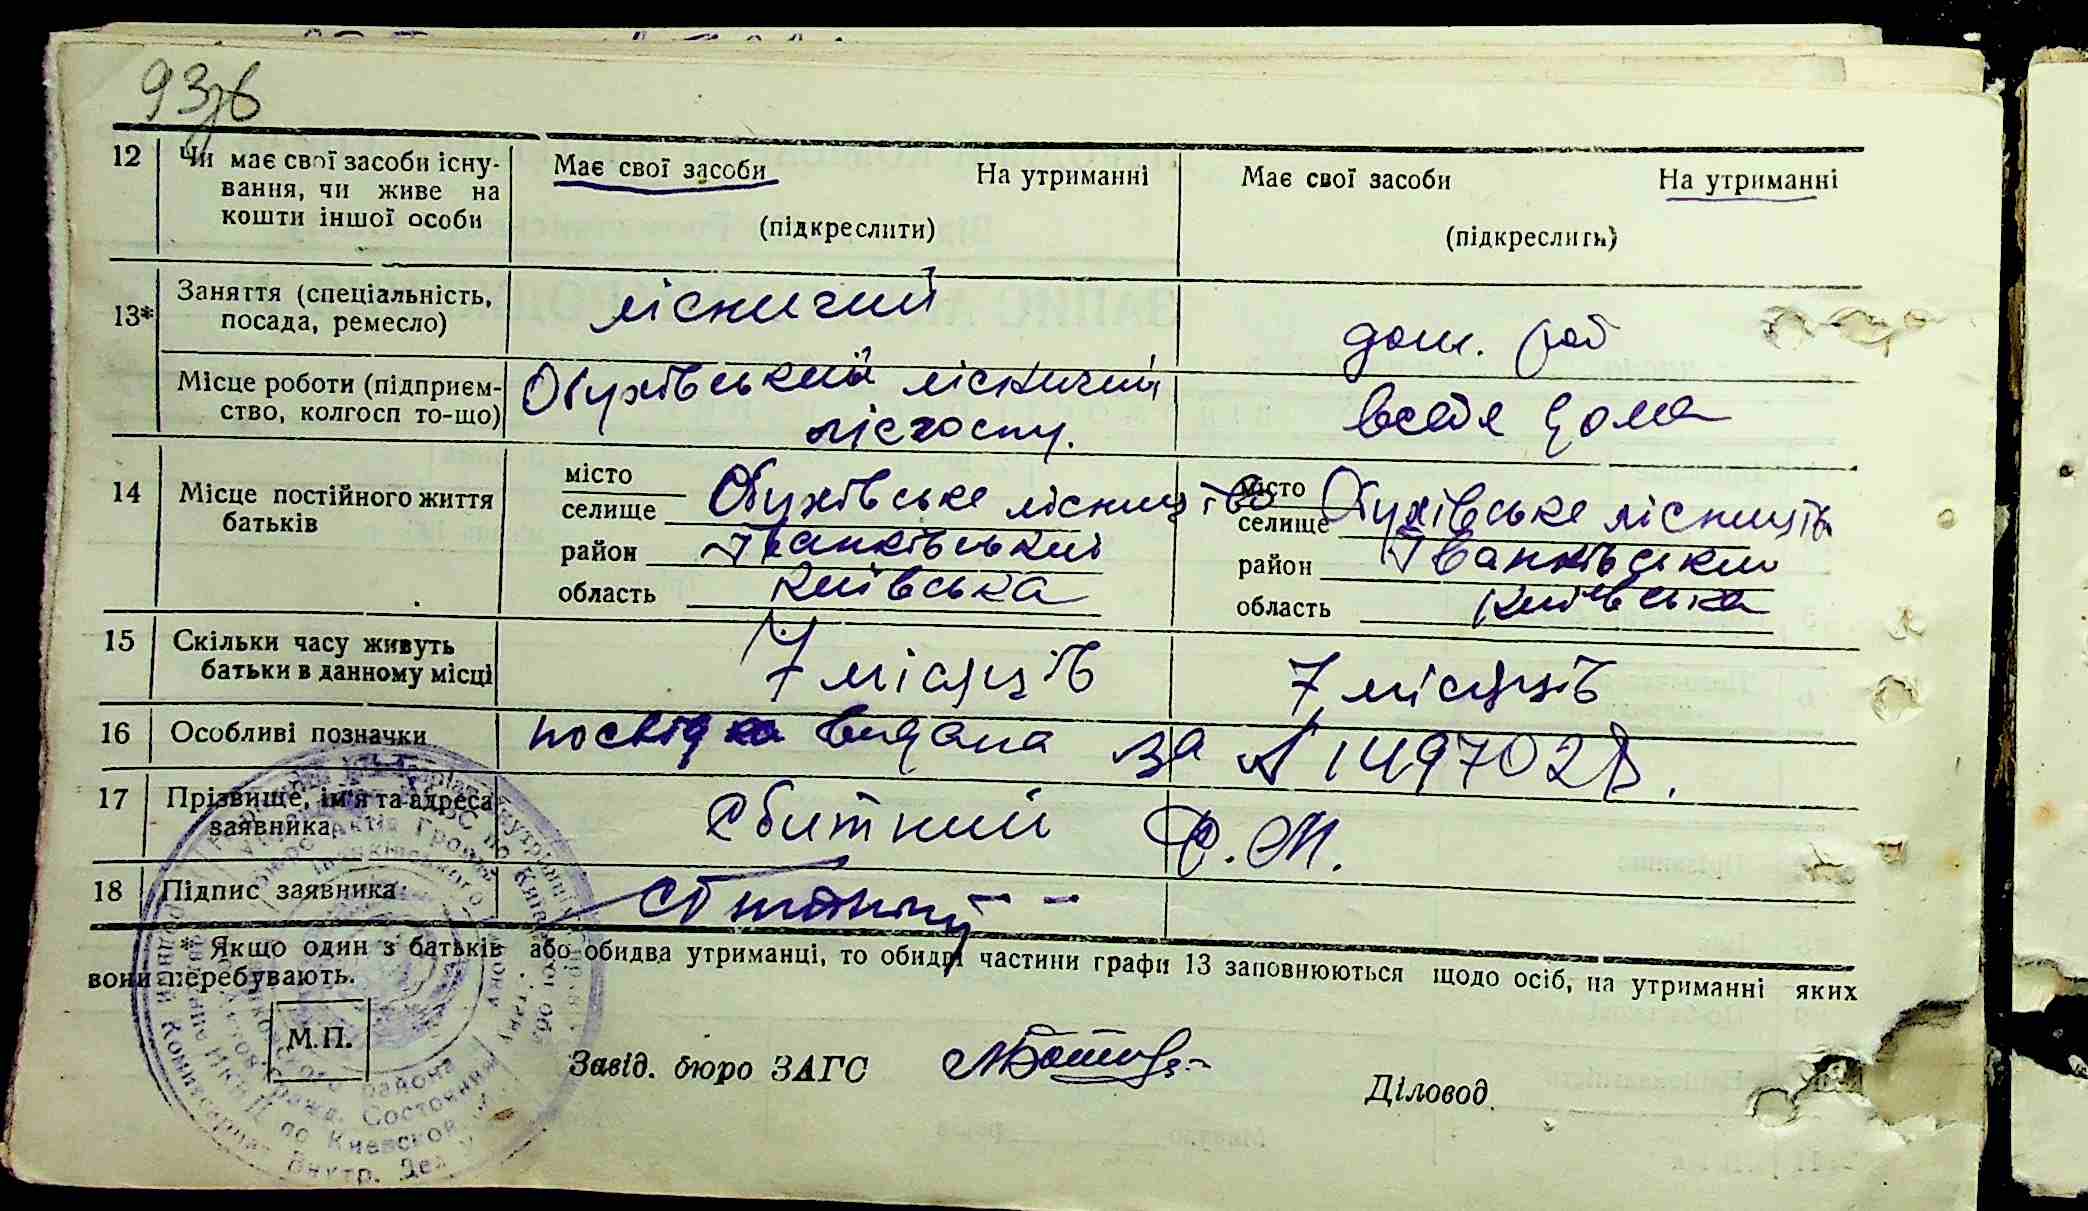 93зв
12 Чи має свої засоби існу- Має свої засоби На утриманні Має свої засоби На утриманні
вання, чи живе на
кошти іншої особи (підкреслити) (підкреслить)
13* Заняття (спеціальність, лісничий
посада, ремесло) дом. раб
Місце роботи (підприєм- Обухівський лісничий вседя дома
ство, колгосп то-що) лісгоспу.
14 Місце постійного життя місто Обухівське лісництво місто Обухівське лісництв
батьків селище селище
район Іванківський район Іванківський
область Київська область Київська
15 Скільки часу живуть 7 місяців 7 місяців
батьки в данному місці
16 Особливі позначки посвідка видана за № 1497028.
17 Прізвище, ім'я та адреса Сбитний Ф. М.
заявника
18 Підпис заявника Сбитний
* Якщо один з батьків або обидва утриманці, то обидві частини графи 13 заповнюються щодо осіб, на утриманні яких
вони перебувають.
М.П.
Завід. бюро ЗАГС
Діловод
района
Гражд. Состояния
по Киевской
Комиссариат Внутр. Дел